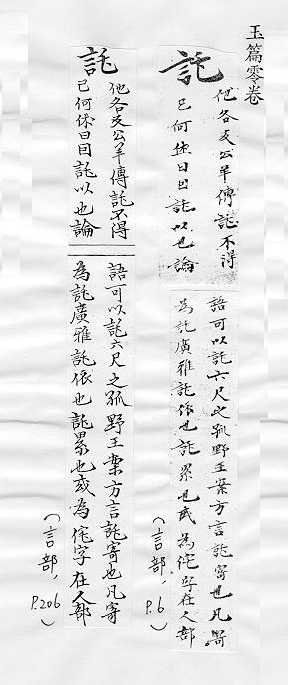 玉篇零卷
託
他各反公羊傳託不得
已何休曰因託以也論
語可以託六尺之孤野王案方言託寄也凡寄
為託廣雅託依也託累也或為侂字在人部
(言部, P.6)
託
他各反公羊傳託不得
已何休曰因託以也論
語可以託六尺之孤野王案方言託寄也凡寄
為託廣雅託依也託累也或為侂字在人部
(言部, P.206)